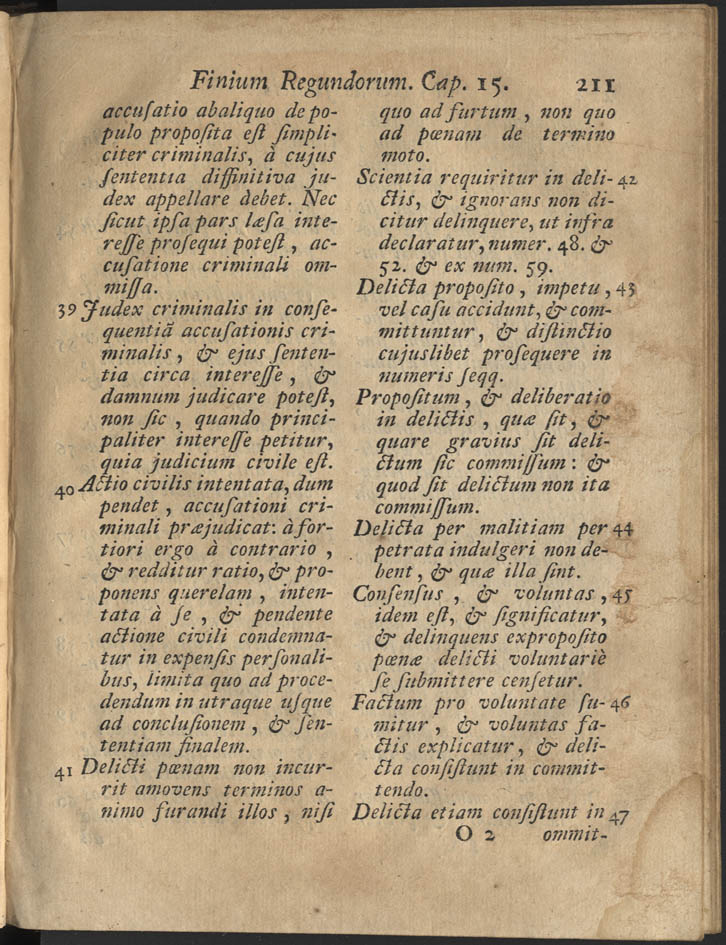 Finium Regundorum. Cap. 15. 211
accuſatio abaliquo de po-
pulo propoſita eſt ſimpli-
citer criminalis, à cujus
ſententia diffinitiva ju-
dex appellare debet. Nec
ſicut ipſa pars læſa inte-
reſſe proſequi poteſt, ac-
cuſatione criminali om-
miſſa.
39 Judex criminalis in conſe-
quentiã accuſationis cri-
minalis, & ejus ſenten-
tia circa intereſſe, &
damnum judicare poteſt,
non ſic, quando princi-
paliter intereſſe petitur,
quia judicium civile eſt.
40 Actio civilis intentata, dum
pendet, accuſationi cri-
minali præjudicat: à for-
tiori ergo à contrario,
& redditur ratio, & pro-
ponens querelam, inten-
tata à ſe, & pendente
actione civili condemna-
tur in expenſis perſonali-
bus, limita quo ad proce-
dendum in utraque uſque
ad concluſionem, & ſen-
tentiam finalem.
41 Delicti pœnam non incur-
rit amovens terminos a-
nimo furandi illos, niſi
quo ad furtum, non quo
ad pœnam de termino
moto.
Scientia requiritur in deli- 42
ctis, & ignorans non di-
citur delinquere, ut infra
declaratur, numer. 48. &
52. & ex num. 59.
Delicta propoſito, impetu, 43
vel caſu accidunt, & com-
mittuntur, & diſtinctio
cujuslibet proſequere in
numeris ſeqq.
Propoſitum, & deliberatio
in delictis, quæ ſit, &
quare gravius ſit deli-
ctum ſic commiſſum: &
quod ſit delictum non ita
commiſſum.
Delicta per malitiam per 44
petrata indulgeri non de-
bent, & quæ illa ſint.
Conſenſus, & voluntas, 45
idem eſt, & ſignificatur,
& delinquens expropoſito
pœnæ delicti voluntariè
ſe ſubmittere cenſetur.
Factum pro voluntate ſu- 46
mitur, & voluntas fa-
ctis explicatur, & deli-
cta conſiſtunt in commit-
tendo.
Delicta etiam conſiſtunt in 47
O 2 ommit-